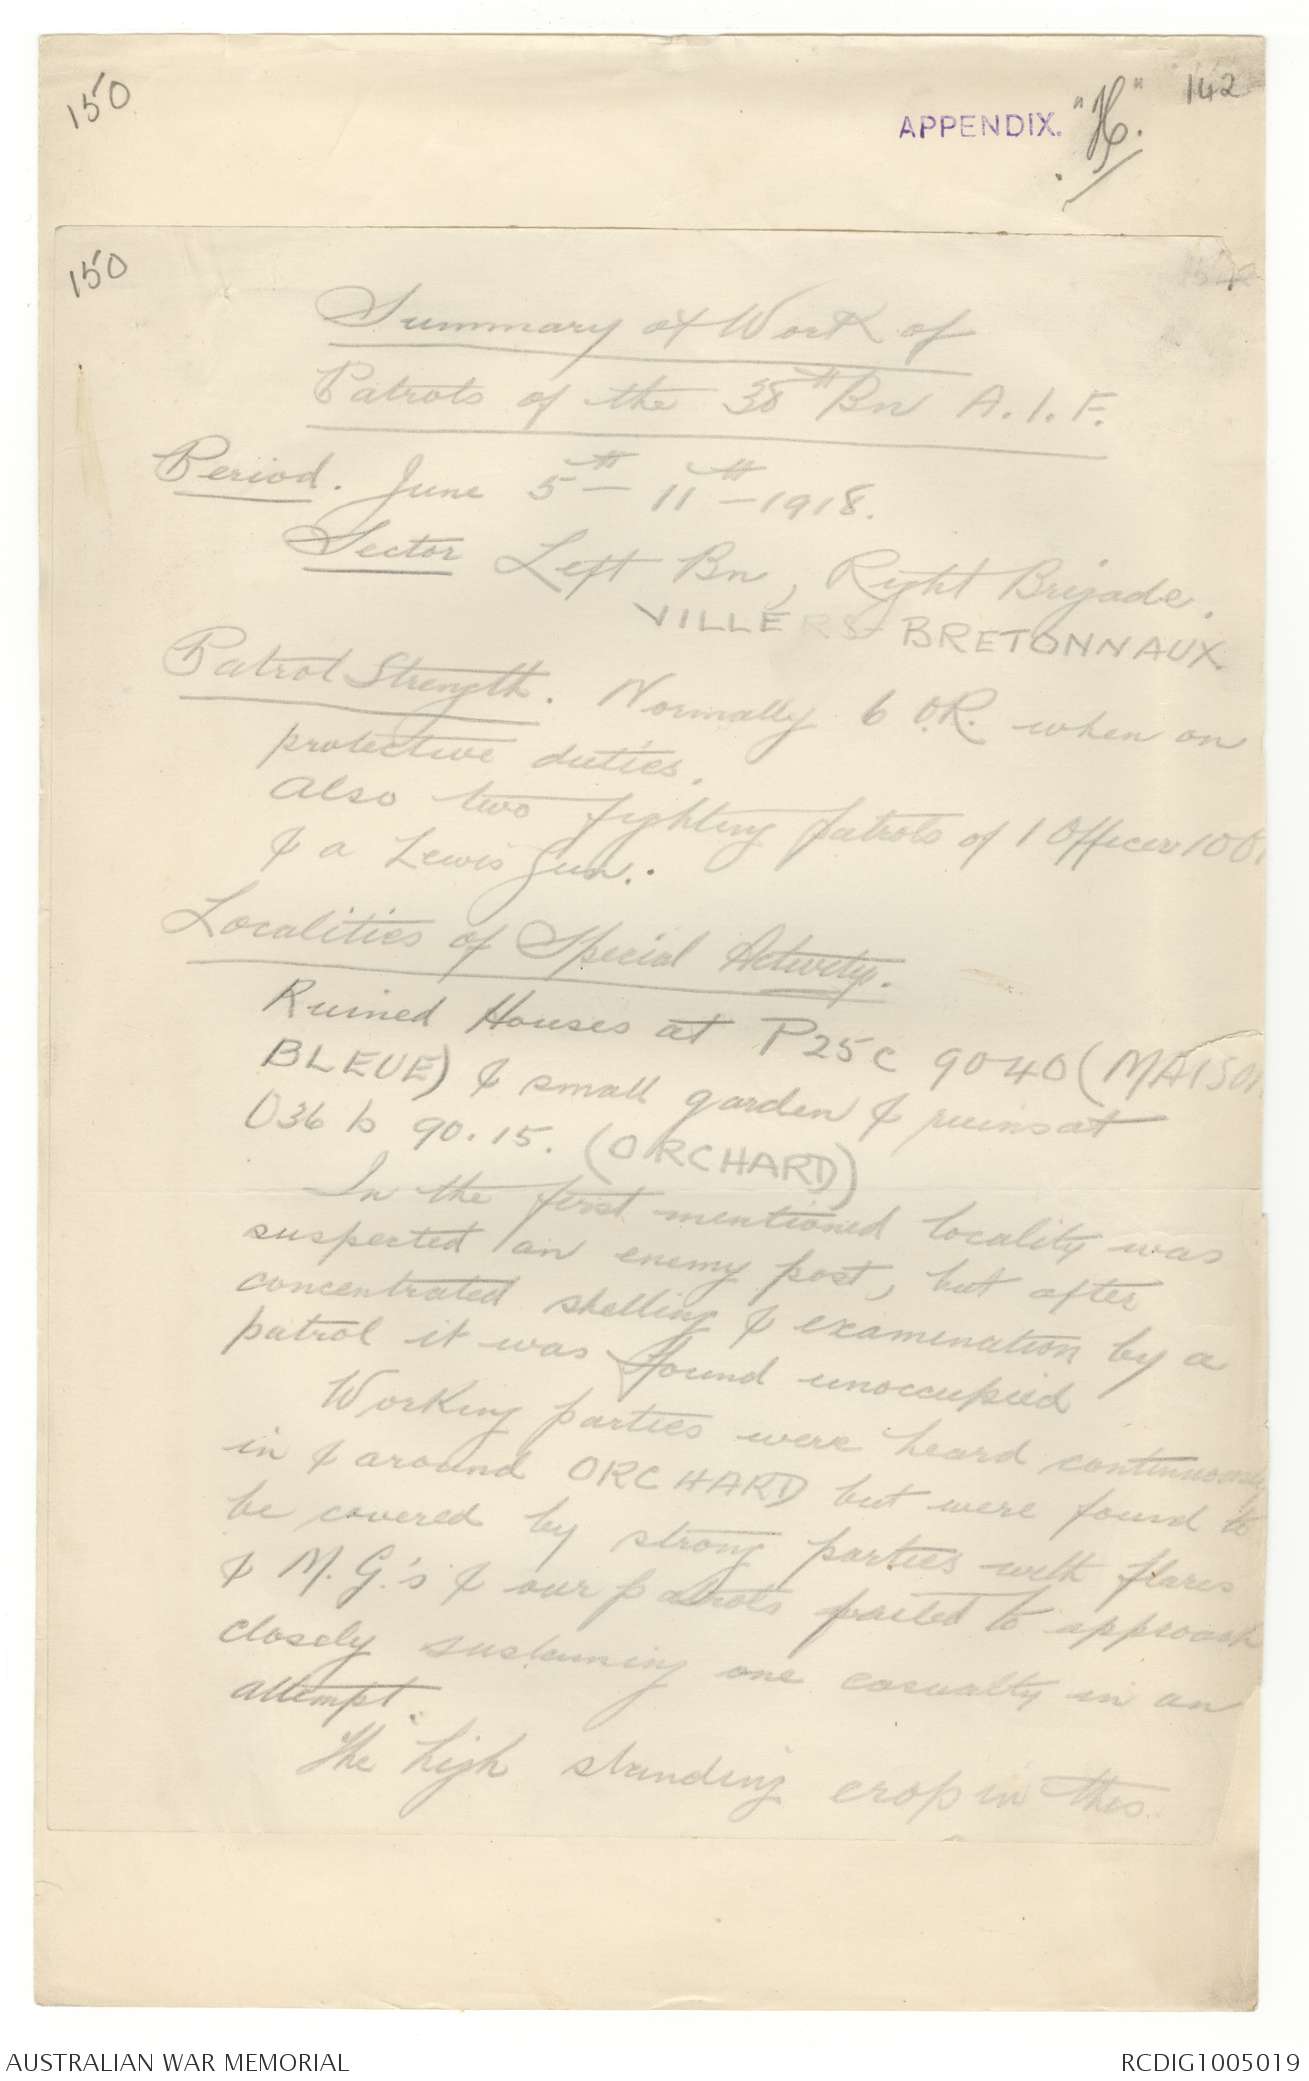 150
APPENDIX. "H". 142
150
Summary of Work of
Patrols of the 38th Bn A.I.F.
Period. June 5th - 11th - 1918.
Sector Left Bn, Right Brigade.
VILLERS-BRETONNAUX
Patrol Strength. Normally 6 O.R. when on
protective duties.
Also two fighting patrols of 1 Officer 10 O
& a Lewis Gun.
Localities of Special Activity.
Ruined Houses at P25c 9040 (MAISON
BLEUE) & small garden & ruins at
O36 b 90.15. (ORCHARD)
In the first mentioned locality was
suspected an enemy post, but after
concentrated shelling & examination by a
patrol it was found unoccupied
Working parties were heard continuously
in & around ORCHARD but were found to
be covered by strong parties with flares
& M.G.'s & our patrols failed to approach
closely sustaining one casualty in an
attempt.
The high standing crop in this
AUSTRALIAN WAR MEMORIAL
RCDIG1005019